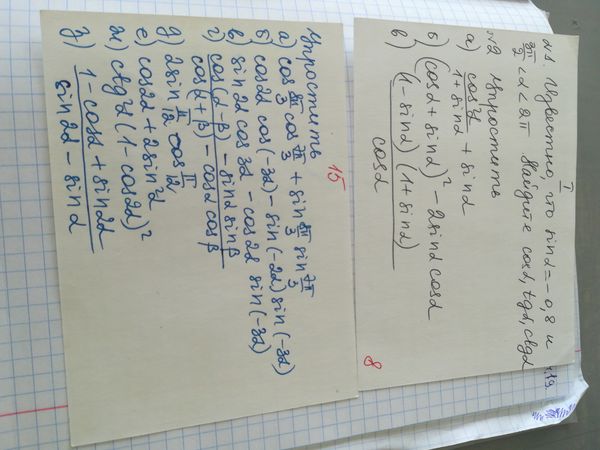 I
N1. Известно, что sinα = -0,8 и
3π/2 < α < 2π Найдите cosα, tgα, ctgα
N2 Упростить
а) cos²α / 1 + sinα + sinα
б) (cosα + sinα)² - 2sinα cosα
в) (1 - sinα)(1 + sinα) / cosα
8
15
Упростить
а) cos 8π/3 cos 7π/3 + sin 8π/3 sin 7π/3
б) cos2α cos(-3α) - sin(-2α) sin(-3α)
в) sin2α cos3α - cos2α sin(-3α)
г) cos(α-β) - sinα sinβ / cos(α+β) - cosα cosβ
д) 2sin π/12 cos π/12
е) cos2α + 2sin²α
ж) ctg²α (1 - cos2α)²
з) 1 - cosα + sin2α / sin2α - sinα